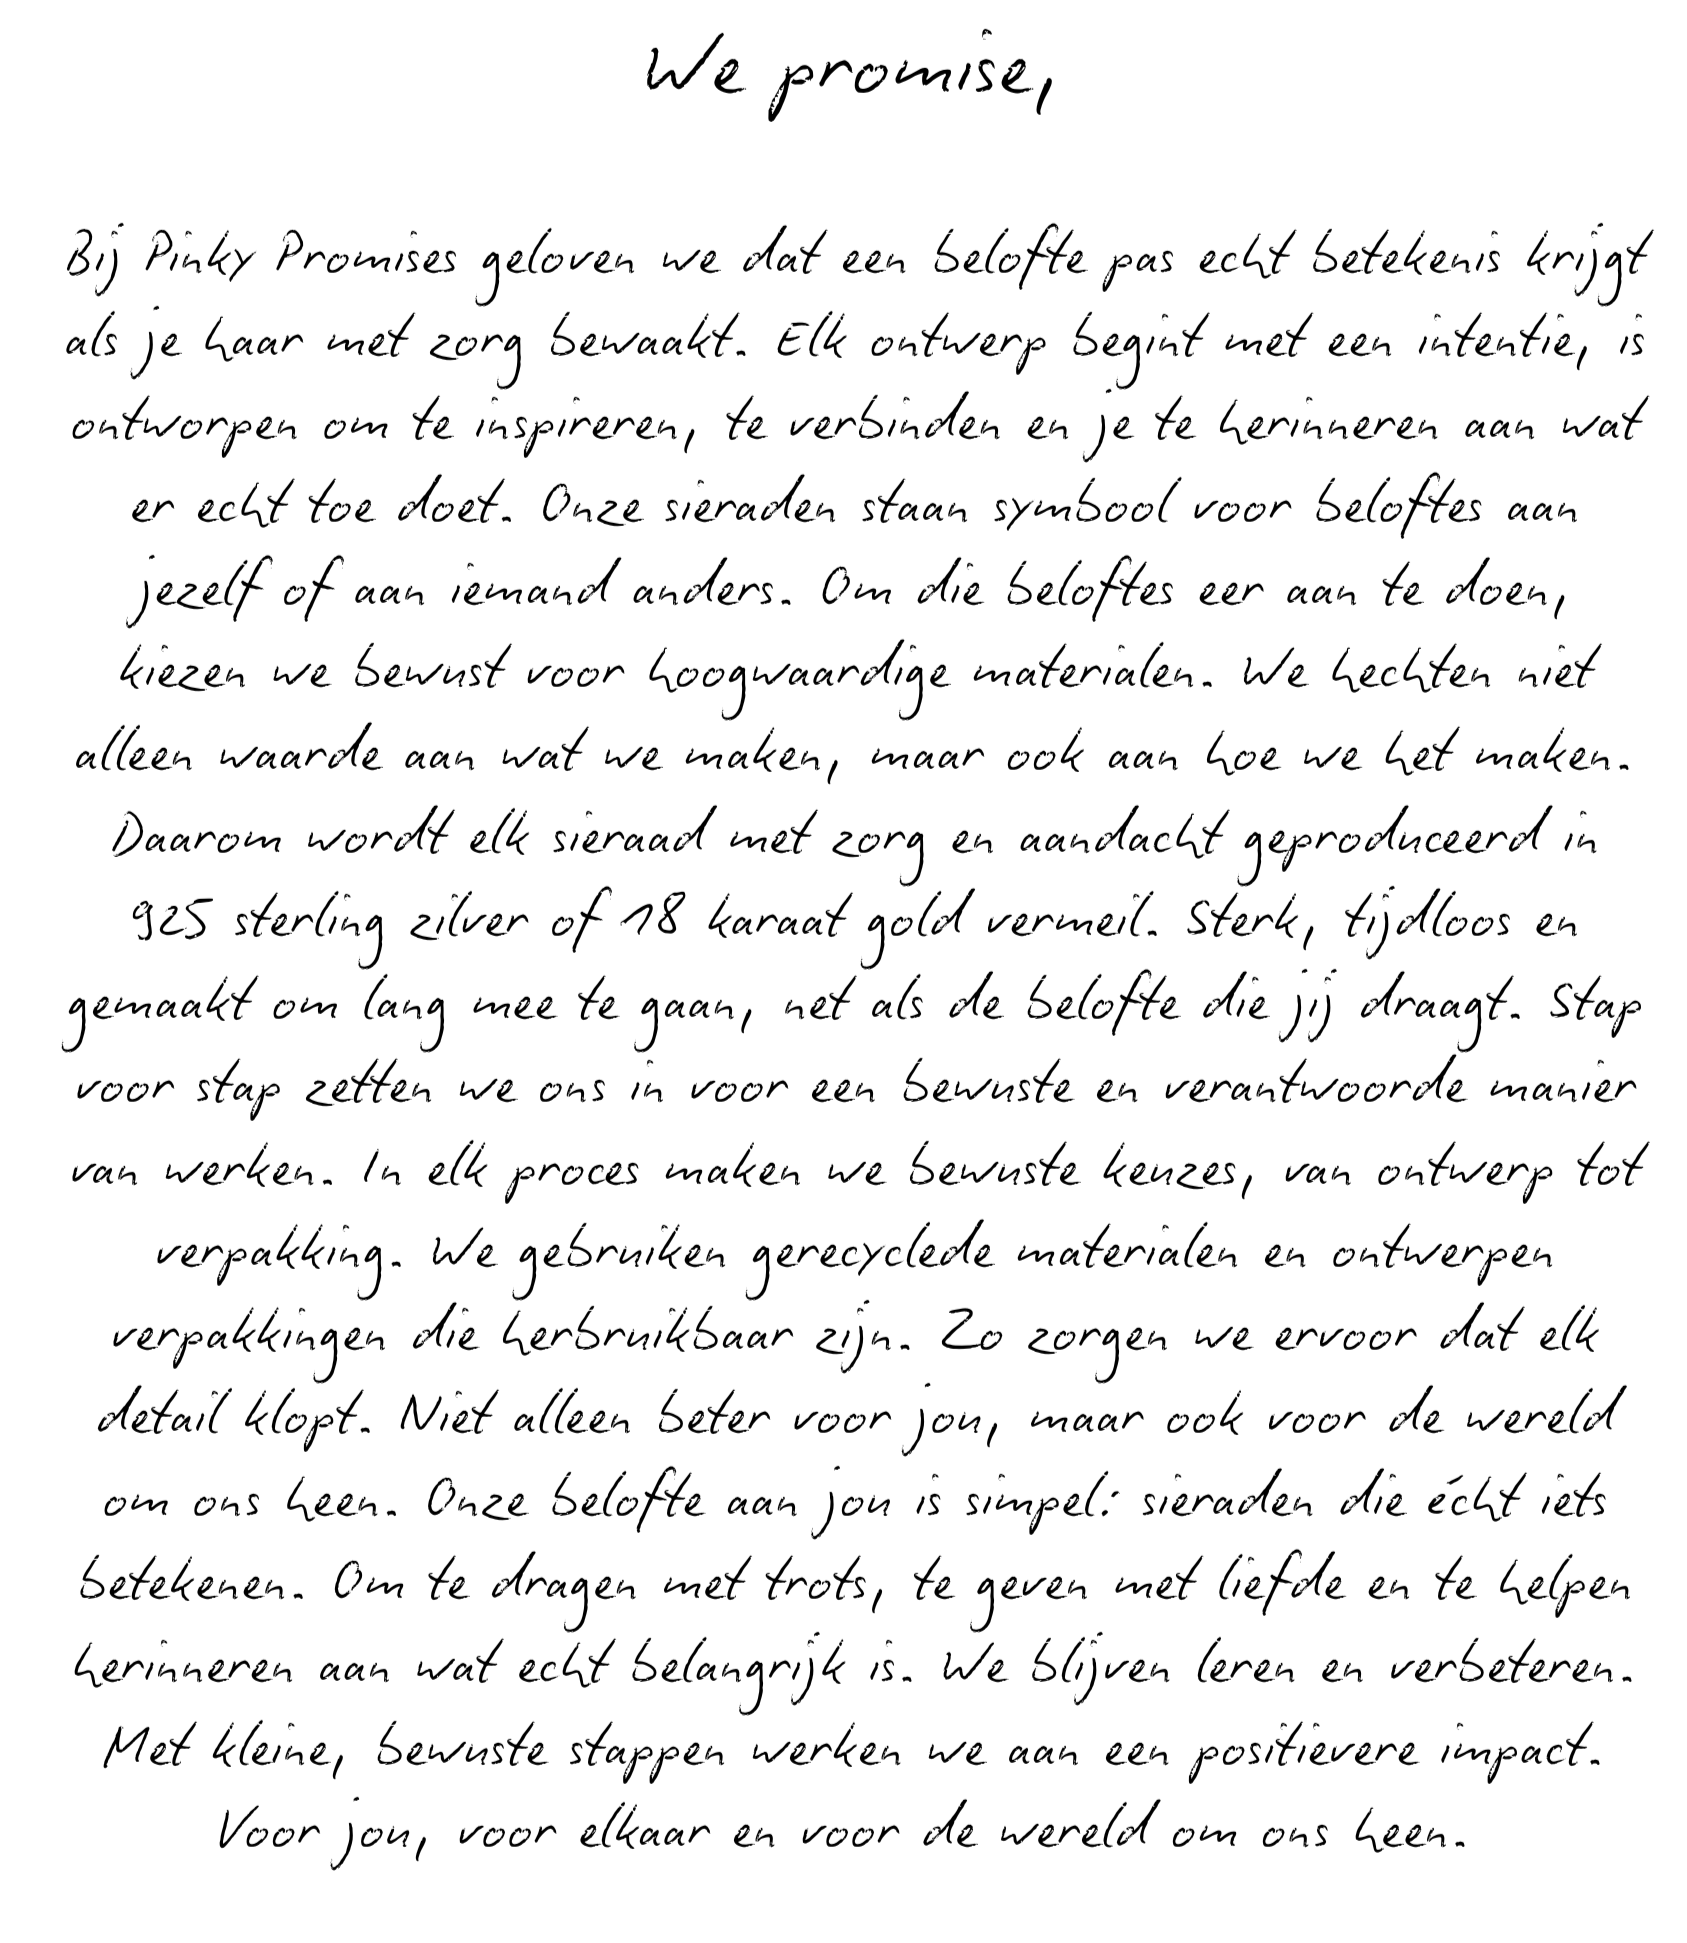 We promise,
Bij Pinky Promises geloven we dat een belofte pas echt betekenis krijgt
als je haar met zorg bewaakt. Elk ontwerp begint met een intentie, is
ontworpen om te inspireren, te verbinden en je te herinneren aan wat
er echt toe doet. Onze sieraden staan symbool voor beloftes aan
jezelf of aan iemand anders. Om die beloftes eer aan te doen,
kiezen we bewust voor hoogwaardige materialen. We hechten niet
alleen waarde aan wat we maken, maar ook aan hoe we het maken.
Daarom wordt elk sieraad met zorg en aandacht geproduceerd in
925 sterling zilver of 18 karaat gold vermeil. Sterk, tijdloos en
gemaakt om lang mee te gaan, net als de belofte die jij draagt. Stap
voor stap zetten we ons in voor een bewuste en verantwoorde manier
van werken. In elk proces maken we bewuste keuzes, van ontwerp tot
verpakking. We gebruiken gerecyclede materialen en ontwerpen
verpakkingen die herbruikbaar zijn. Zo zorgen we ervoor dat elk
detail klopt. Niet alleen beter voor jou, maar ook voor de wereld
om ons heen. Onze belofte aan jou is simpel: sieraden die écht iets
betekenen. Om te dragen met trots, te geven met liefde en te helpen
herinneren aan wat echt belangrijk is. We blijven leren en verbeteren.
Met kleine, bewuste stappen werken we aan een positievere impact.
Voor jou, voor elkaar en voor de wereld om ons heen.